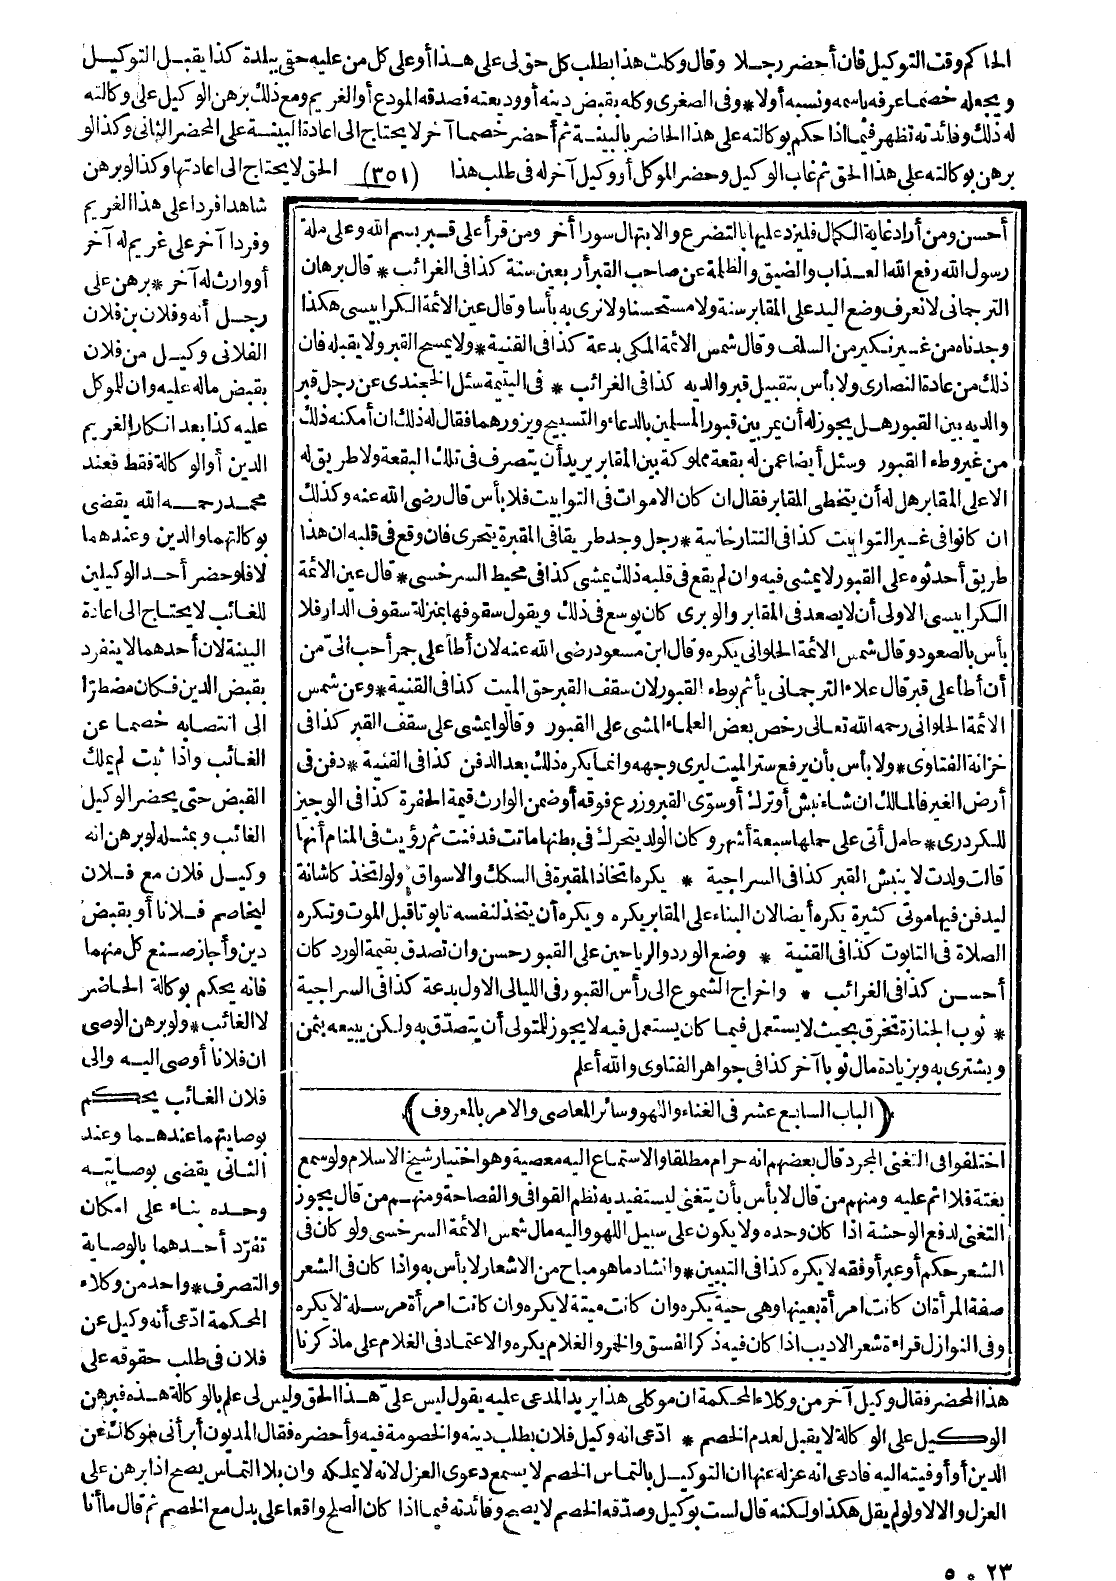 الحاكم وقت التوكيل فان أحضر رجلا وقال وكلت هذا بطلب كل حق لى على هذا أو على كل من عليه حتى ببلدة كذا يقبل التوكيل
ويجعله خصما عرفه باسمه ونسبه أولا * وفى الصغرى وكله بقبض دينه أو وديعته فصدقه المودع أو الغريم ومع ذلك برهن الوكيل على وكالته
له ذلك وفائدته تظهر فيما اذا حكم بوكالته على هذا الحاضر بالبينة ثم أحضر خصما آخر لا يحتاج الى اعادة البينة على المحضر الثانى وكذا لو
برهن بوكالته على هذا الحق ثم غاب الوكيل وحضر الموكل أو وكيل آخر له فى طلب هذا (٣٥١) الحق لا يحتاج الى اعادتها وكذا لو برهن
شاهدا فردا على هذا الغريم
وفردا آخر على غريم له آخر
أو وارث له آخر * برهن على
رجل أنه وفلان بن فلان
الفلانى وكيل من فلان
بقبض ماله عليه وان للموكل
عليه كذا بعد انكار الغريم
الدين أو الوكالة فقط فعند
محمد رحمه الله يقضى
بوكالتهما والدين وعندهما
لا فلو حضر أحد الوكيلين
للغائب لا يحتاج الى اعادة
البينة لان أحدهما لا ينفرد
بقبض الدين فكان مضطرا
الى انتصابه خصما عن
الغائب واذا ثبت لم يملك
القبض حتى يحضر الوكيل
الغائب وبمثله لو برهن انه
وكيل فلان مع فلان
ليخاصم فلانا أو بقبض
دين وأجاز صنع كل منهما
فانه يحكم بوكالة الحاضر
لا الغائب * ولو برهن الوصى
ان فلانا أوصى اليه والى
فلان الغائب يحكم
بوصايتهما عندهما وعند
الثانى يقضى بوصايته
وحده بناء على امكان
تفرد أحدهما بالوصاية
والتصرف * واحد من وكلاء
المحكمة ادّعى أنه وكيل عن
فلان فى طلب حقوقه على
أحسن ومن أراد غاية الكمال فليزد عليها بالتضرع والابتهال سورا أخر ومن قرأ على قبر بسم الله وعلى ملة
رسول الله رفع الله العذاب والضيق والظلمة عن صاحب القبر أربعين سنة كذا فى الغرائب * قال برهان
الترجمانى لا نعرف وضع اليد على المقابر سنة ولا مستحسنا ولا نرى به بأسا وقال عين الائمة الكرابيسى هكذا
وجدناه من غير نكير من السلف وقال شمس الائمة المكى بدعة كذا فى القنية * ولا يمسح القبر ولا يقبله فان
ذلك من عادة النصارى ولا بأس بتقبيل قبر والديه كذا فى الغرائب * فى اليتيمة سئل الخجندى عن رجل قبر
والديه بين القبور هل يجوز له أن يمر بين قبور المسلمين بالدعاء والتسبيح ويزورهما فقال له ذلك ان أمكنه ذلك
من غير وطء القبور وسئل أيضا عمن له بقعة مملوكة بين المقابر يريد أن يتصرف فى تلك البقعة ولا طريق له
الا على المقابر هل له أن يتخطى المقابر فقال ان كان الاموات فى التوابيت فلا بأس قال رضى الله عنه وكذلك
ان كانوا فى غير التوابيت كذا فى التتارخانية * رجل وجد طريقا فى المقبرة يتحرى فان وقع فى قلبه ان هذا
طريق أحدثوه على القبور لا يمشى فيه وان لم يقع فى قلبه ذلك يمشى كذا فى محيط السرخسى * قال عين الائمة
الكرابيسى الاولى أن لا يصعد فى المقابر والوبرى كان يوسع فى ذلك ويقول سقوفها بمنزلة سقوف الدار فلا
بأس بالصعود وقال شمس الائمة الحلوانى يكره وقال ابن مسعود رضى الله عنه لان أطأ على جمر أحب الىّ من
أن أطأ على قبر قال علاء الترجمانى يأثم بوطء القبور لان سقف القبر حق الميت كذا فى القنية * وعن شمس
الائمة الحلوانى رحمه الله تعالى رخص بعض العلماء المشى على القبور وقالوا يمشى على سقف القبر كذا فى
خزانة الفتاوى * ولا بأس بأن يرفع ستر الميت ليرى وجهه وانما يكره ذلك بعد الدفن كذا فى القنية * دفن فى
أرض الغير فالمالك ان شاء نبش أو ترك أو سوّى القبر وزرع فوقه أو ضمن الوارث قيمة الحفرة كذا فى الوجيز
للكردرى * حامل أتى على حملها سبعة أشهر وكان الولد يتحرك فى بطنها ماتت فدفنت ثم رؤيت فى المنام أنها
قالت ولدت لا ينبش القبر كذا فى السراجية * يكره اتخاذ المقبرة فى السكك والاسواق ولو اتخذ كاشانة
ليدفن فيها موتى كثيرة يكره أيضا لان البناء على المقابر يكره ويكره أن يتخذ لنفسه تابوتا قبل الموت وتكره
الصلاة فى التابوت كذا فى القنية * وضع الورد والرياحين على القبور حسن وان تصدق بقيمة الورد كان
أحسن كذا فى الغرائب * واخراج الشموع الى رأس القبور فى الليالى الاول بدعة كذا فى السراجية
* ثوب الجنازة تخرق بحيث لا يستعمل فيما كان يستعمل فيه لا يجوز للمتولى أن يتصدّق به ولكن يبيعه بثمن
ويشترى به وبزيادة مال ثوبا آخر كذا فى جواهر الفتاوى والله أعلم
﴿الباب السابع عشر فى الغناء واللهو وسائر المعاصى والامر بالمعروف﴾
اختلفوا فى التغنى المجرد قال بعضهم انه حرام مطلقا والاستماع اليه معصية وهو اختيار شيخ الاسلام ولو سمع
بغتة فلا اثم عليه ومنهم من قال لا بأس بأن يتغنى ليستفيد به نظم القوافى والفصاحة ومنهم من قال يجوز
التغنى لدفع الوحشة اذا كان وحده ولا يكون على سبيل اللهو واليه مال شمس الائمة السرخسى ولو كان فى
الشعر حكم أو عبر أو فقه لا يكره كذا فى التبيين * وانشاد ما هو مباح من الاشعار لا بأس به واذا كان فى الشعر
صفة المرأة ان كانت امرأة بعينها وهى حية يكره وان كانت ميتة لا يكره وان كانت امرأة مرسلة لا يكره
وفى النوازل قراءة شعر الاديب اذا كان فيه ذكر الفسق والخمر والغلام يكره والاعتماد فى الغلام على ما ذكرنا
هذا المحضر فقال وكيل آخر من وكلاء المحكمة ان موكلى هذا يريد المدعى عليه يقول ليس علىّ هذا الحق وليس لى علم بالوكالة هذه فبرهن
الوكيل على الوكالة لا يقبل لعدم الخصم * ادّعى انه وكيل فلان بطلب دينه والخصومة فيه وأحضره فقال المديون أبرأنى موكلك عن
الدين أو أوفيته اليه فادعى انه عزله عنها ان التوكيل بالتماس الخصم لا يسمع دعوى العزل لانه لا يملكه وان بلا التماس يصح اذا برهن على
العزل والا لا ولو لم يقل هكذا ولكنه قال لست بوكيل وصدّقه الخصم لا يصح وفائدته فيما اذا كان الصلح واقعا على بدل مع الخصم ثم قال ما أنا
٢٣ ٠ ٥